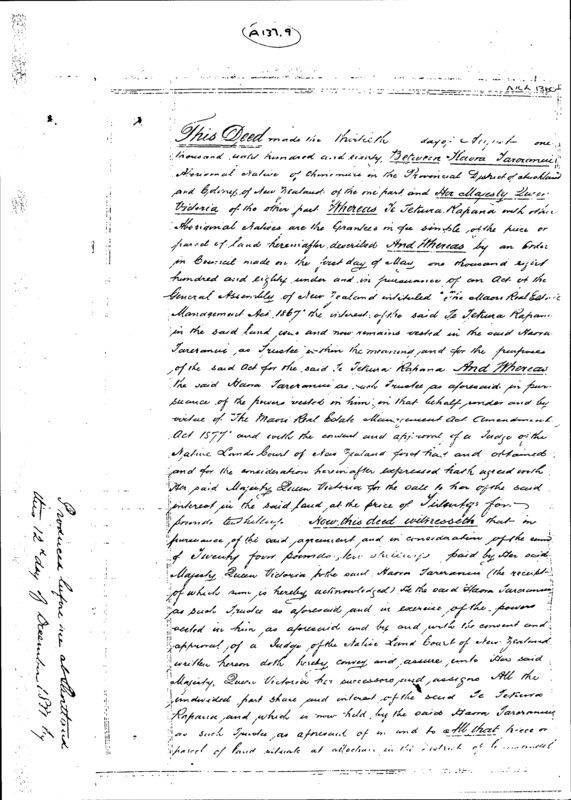 A137.9
This Deed made the thirtieth day of August one
thousand eight hundred and eighty Between Haora Tareranui
Aboriginal Native of Ohinemuri in the Provincial District of Auckland
and Colony of New Zealand of the one part and Her Majesty Queen
Victoria of the other part Whereas Te Tetura Rapana with other
Aboriginal Natives are the Grantees in fee simple of the piece or
parcel of land hereinafter described And Whereas by an Order
in Council made on the first day of May one thousand eight
hundred and eighty under and in pursuance of an Act of the
General Assembly of New Zealand intituled "The Maori Real Estate
Management Act 1867" the interest of the said Te Tetura Rapana
in the said land was and now remains vested in the said Haora
Tareranui as Trustee within the meaning and for the purposes
of the said Act for the said Te Tetura Rapana And Whereas
the said Haora Tareranui as such Trustee as aforesaid in pur-
suance of the powers vested in him in that behalf under and by
virtue of "The Maori Real Estate Management Act Amendment
Act 1877" and with the consent and approval of a Judge of the
Native Lands Court of New Zealand first had and obtained
and for the consideration hereinafter expressed hath agreed with
Her said Majesty Queen Victoria for the sale to her of the said
interest in the said land at the price of Twenty four
pounds ten shillings Now this deed witnesseth that in
pursuance of the said agreement and in consideration of the sum
of Twenty four pounds ten shillings paid by Her said
Majesty Queen Victoria to the said Haora Tareranui (the receipt
of which sum is hereby acknowledged) He the said Haora Tareranui
as such Trustee as aforesaid and in exercise of the powers
vested in him as aforesaid and by and with the consent and
approval of a Judge of the Native Land Court of New Zealand
written hereon doth hereby convey and assure unto Her said
Majesty Queen Victoria her successors and assigns All the
undivided part share and interest of the said Te Tetura
Rapana and which is now held by the said Haora Tareranui
as such Trustee as aforesaid of in and to All that piece or
parcel of land situate at in the District of
Produced before me at
this 12th day of December 18 by